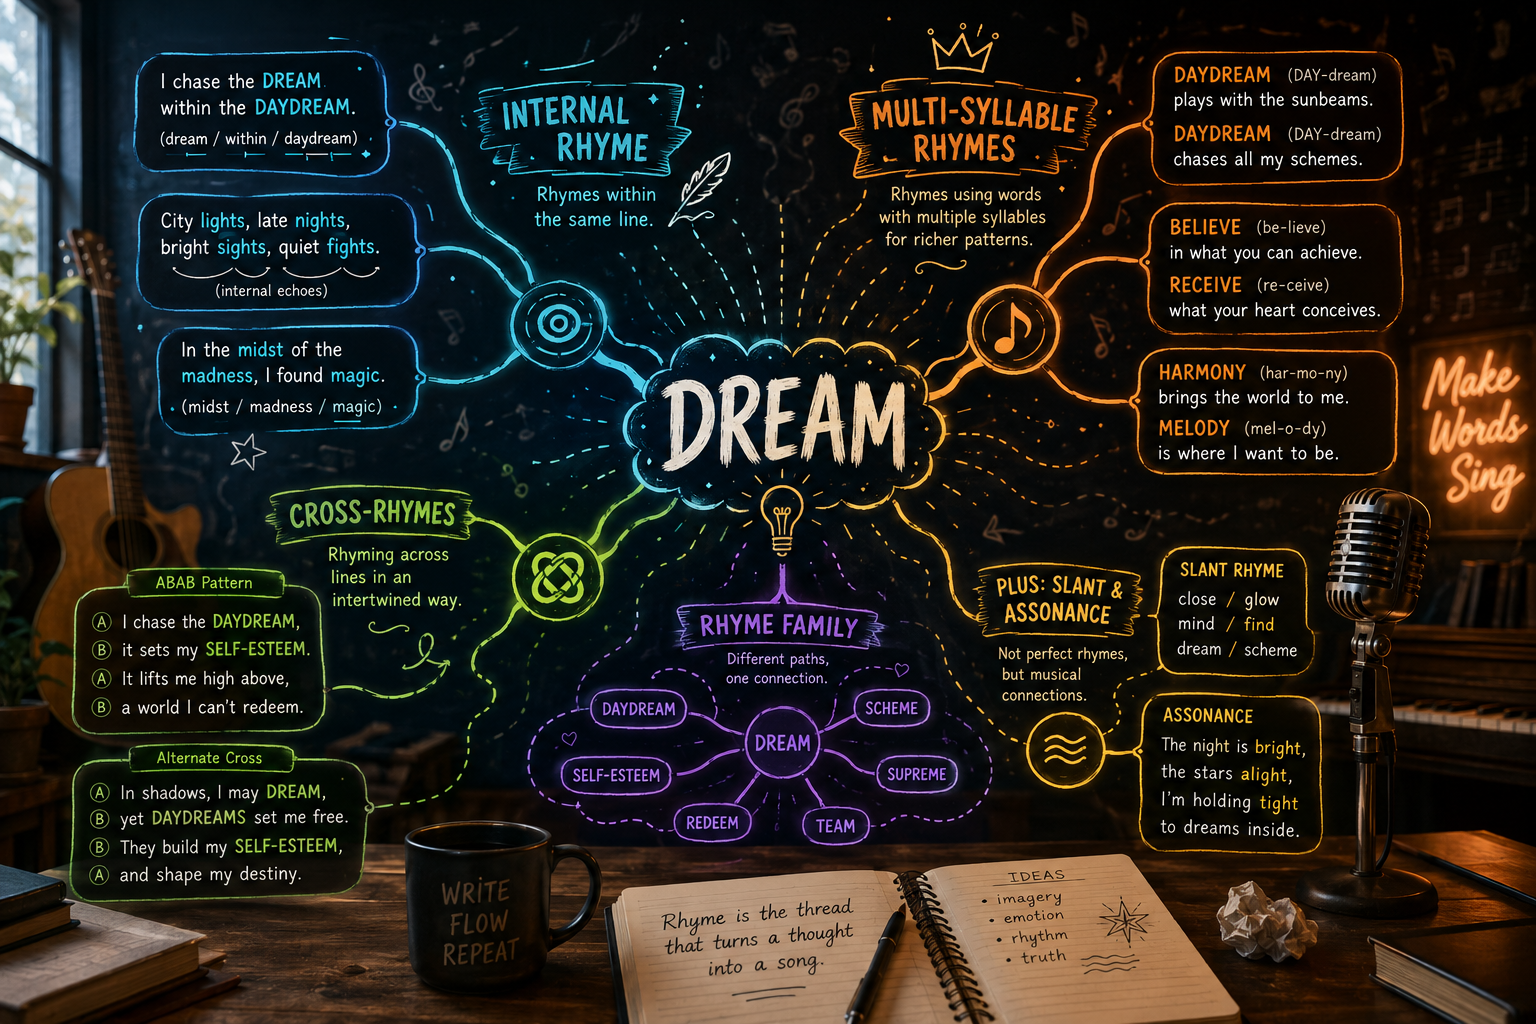 I chase the DREAM
within the DAYDREAM.
(dream / within / daydream)
City lights, late nights,
bright sights, quiet fights.
(internal echoes)
In the midst of the
madness, I found magic.
(midst / madness / magic)
INTERNAL
RHYME
Rhymes within
the same line.
MULTI-SYLLABLE
RHYMES
Rhymes using words
with multiple syllables
for richer patterns.
DAYDREAM (DAY-dream)
plays with the sunbeams.
DAYDREAM (DAY-dream)
chases all my schemes.
BELIEVE (be-lieve)
in what you can achieve.
RECEIVE (re-ceive)
what your heart conceives.
HARMONY (har-mo-ny)
brings the world to me.
MELODY (mel-o-dy)
is where I want to be.
Make
Words
Sing
DREAM
CROSS-RHYMES
Rhyming across
lines in an
intertwined way.
ABAB Pattern
A I chase the DAYDREAM,
B it sets my SELF-ESTEEM.
A It lifts me high above,
B a world I can't redeem.
Alternate Cross
A In shadows, I may DREAM,
B yet DAYDREAMS set me free.
B They build my SELF-ESTEEM,
A and shape my destiny.
RHYME FAMILY
Different paths,
one connection.
DAYDREAM
SCHEME
DREAM
SELF-ESTEEM
SUPREME
REDEEM
TEAM
PLUS: SLANT &
ASSONANCE
Not perfect rhymes,
but musical
connections.
SLANT RHYME
close / glow
mind / find
dream / scheme
ASSONANCE
The night is bright,
the stars alight,
I'm holding tight
to dreams inside.
WRITE
FLOW
REPEAT
Rhyme is the thread
that turns a thought
into a song.
IDEAS
• imagery
• emotion
• rhythm
• truth